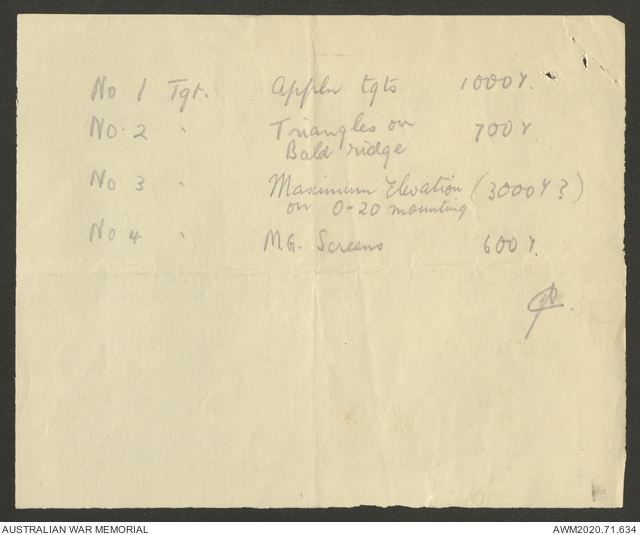 No 1 Tgt. Appln tgts 1000Y.
No. 2 " Triangles on 700Y
Bald ridge
No 3 " Maximum Elevation (3000Y?)
on 0-20 mounting
No 4 " M.G. Screens 600Y.
AUSTRALIAN WAR MEMORIAL
AWM2020.71.634